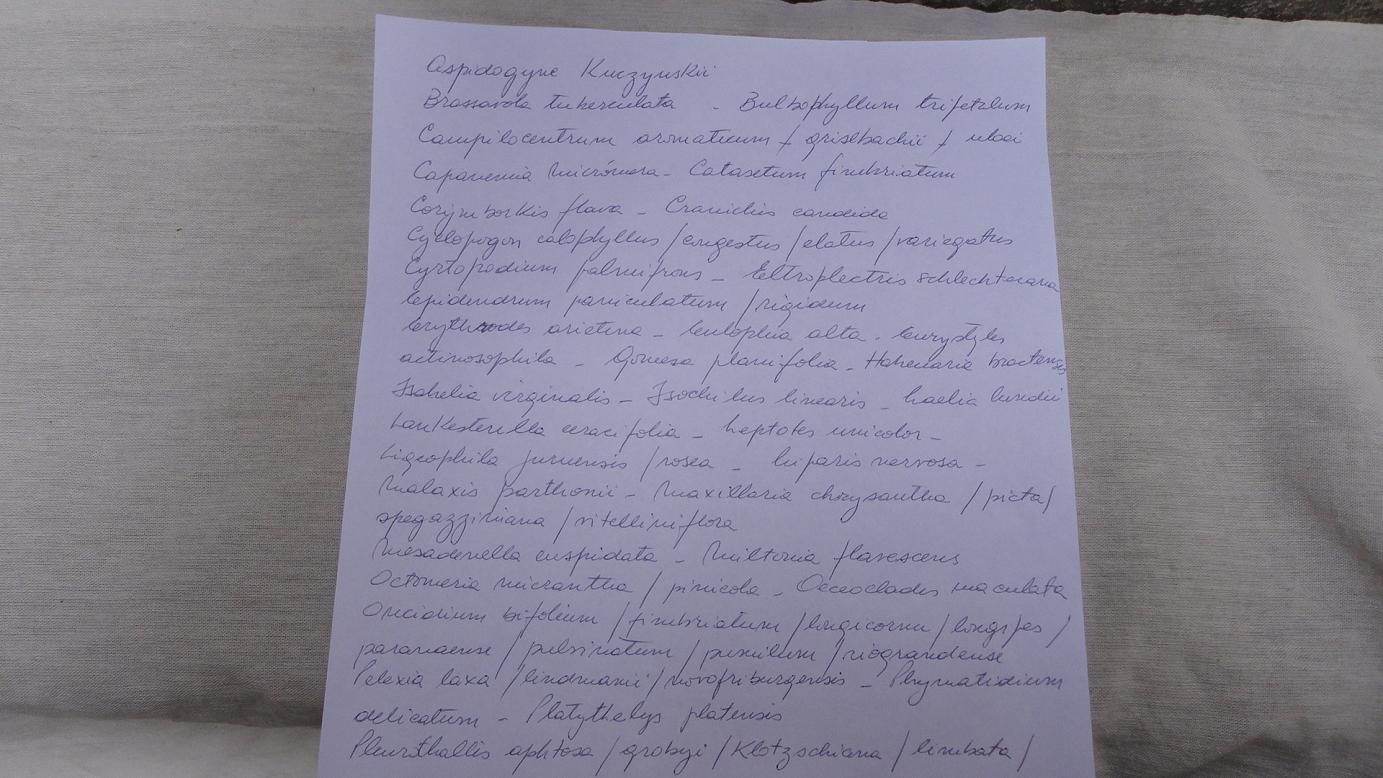 Aspidogyne Kuczynskii
Brassavola tuberculata - Bulbophyllum tripetalum
Campilocentrum aromaticum / grisebachii / ulaei
Capanemia micrómera - Catasetum fimbriatum
Corymborkis flava - Cranichis candida
Cyclopogon calophyllus / congestus / elatus / variegatus
Cyrtopodium palmifrons - Eltroplectris schlechterana
Epidendrum paniculatum / rigidum
Erythrodes arietina - Eulophia alta - Eurystyles
actinosophila - Gomesa planifolia - Habenaria bractensis
Isabelia virginalis - Isochilus linearis - Laelia lundii
Lankesterella ceracifolia - Leptotes unicolor -
Ligeophila juruensis / rosea - Liparis nervosa -
Malaxis parthonii - Maxillaria chrysantha / picta /
spegazziniana / vitelliniflora
Mesadenella cuspidata - Miltonia flavescens
Octomeria micrantha / pinicola - Oeceoclades maculata
Oncidium bifolium / fimbriatum / longicornu / longipes /
paranaense / pulvinatum / pumilum / riograndense
Pelexia laxa / lindmanii / novofriburgensis - Phymatidium
delicatum - Platythelys platensis
Pleurthallis aphtosa / grobyi / Klotzschiana / limbata /